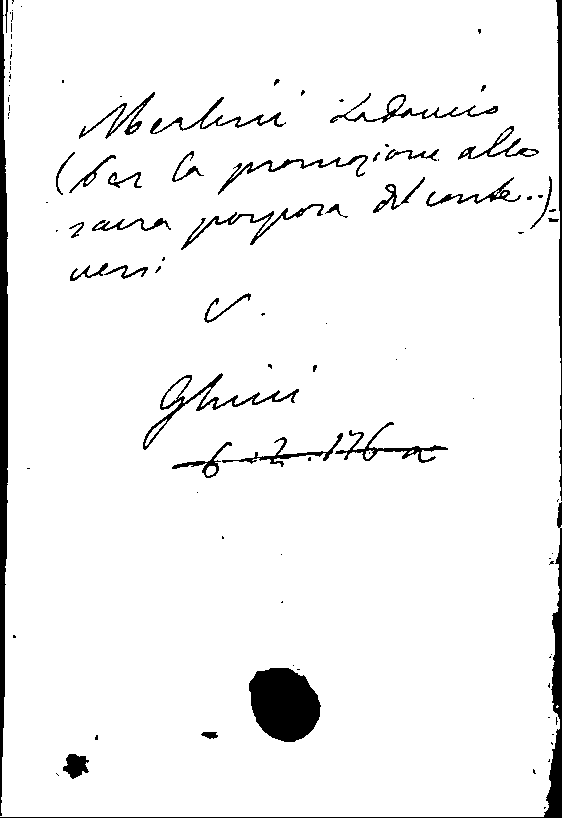 Merlini Lodovico
(per la promozione alla
sacra porpora del conte..)=
versi
V.
Ghini
6.2.176 a